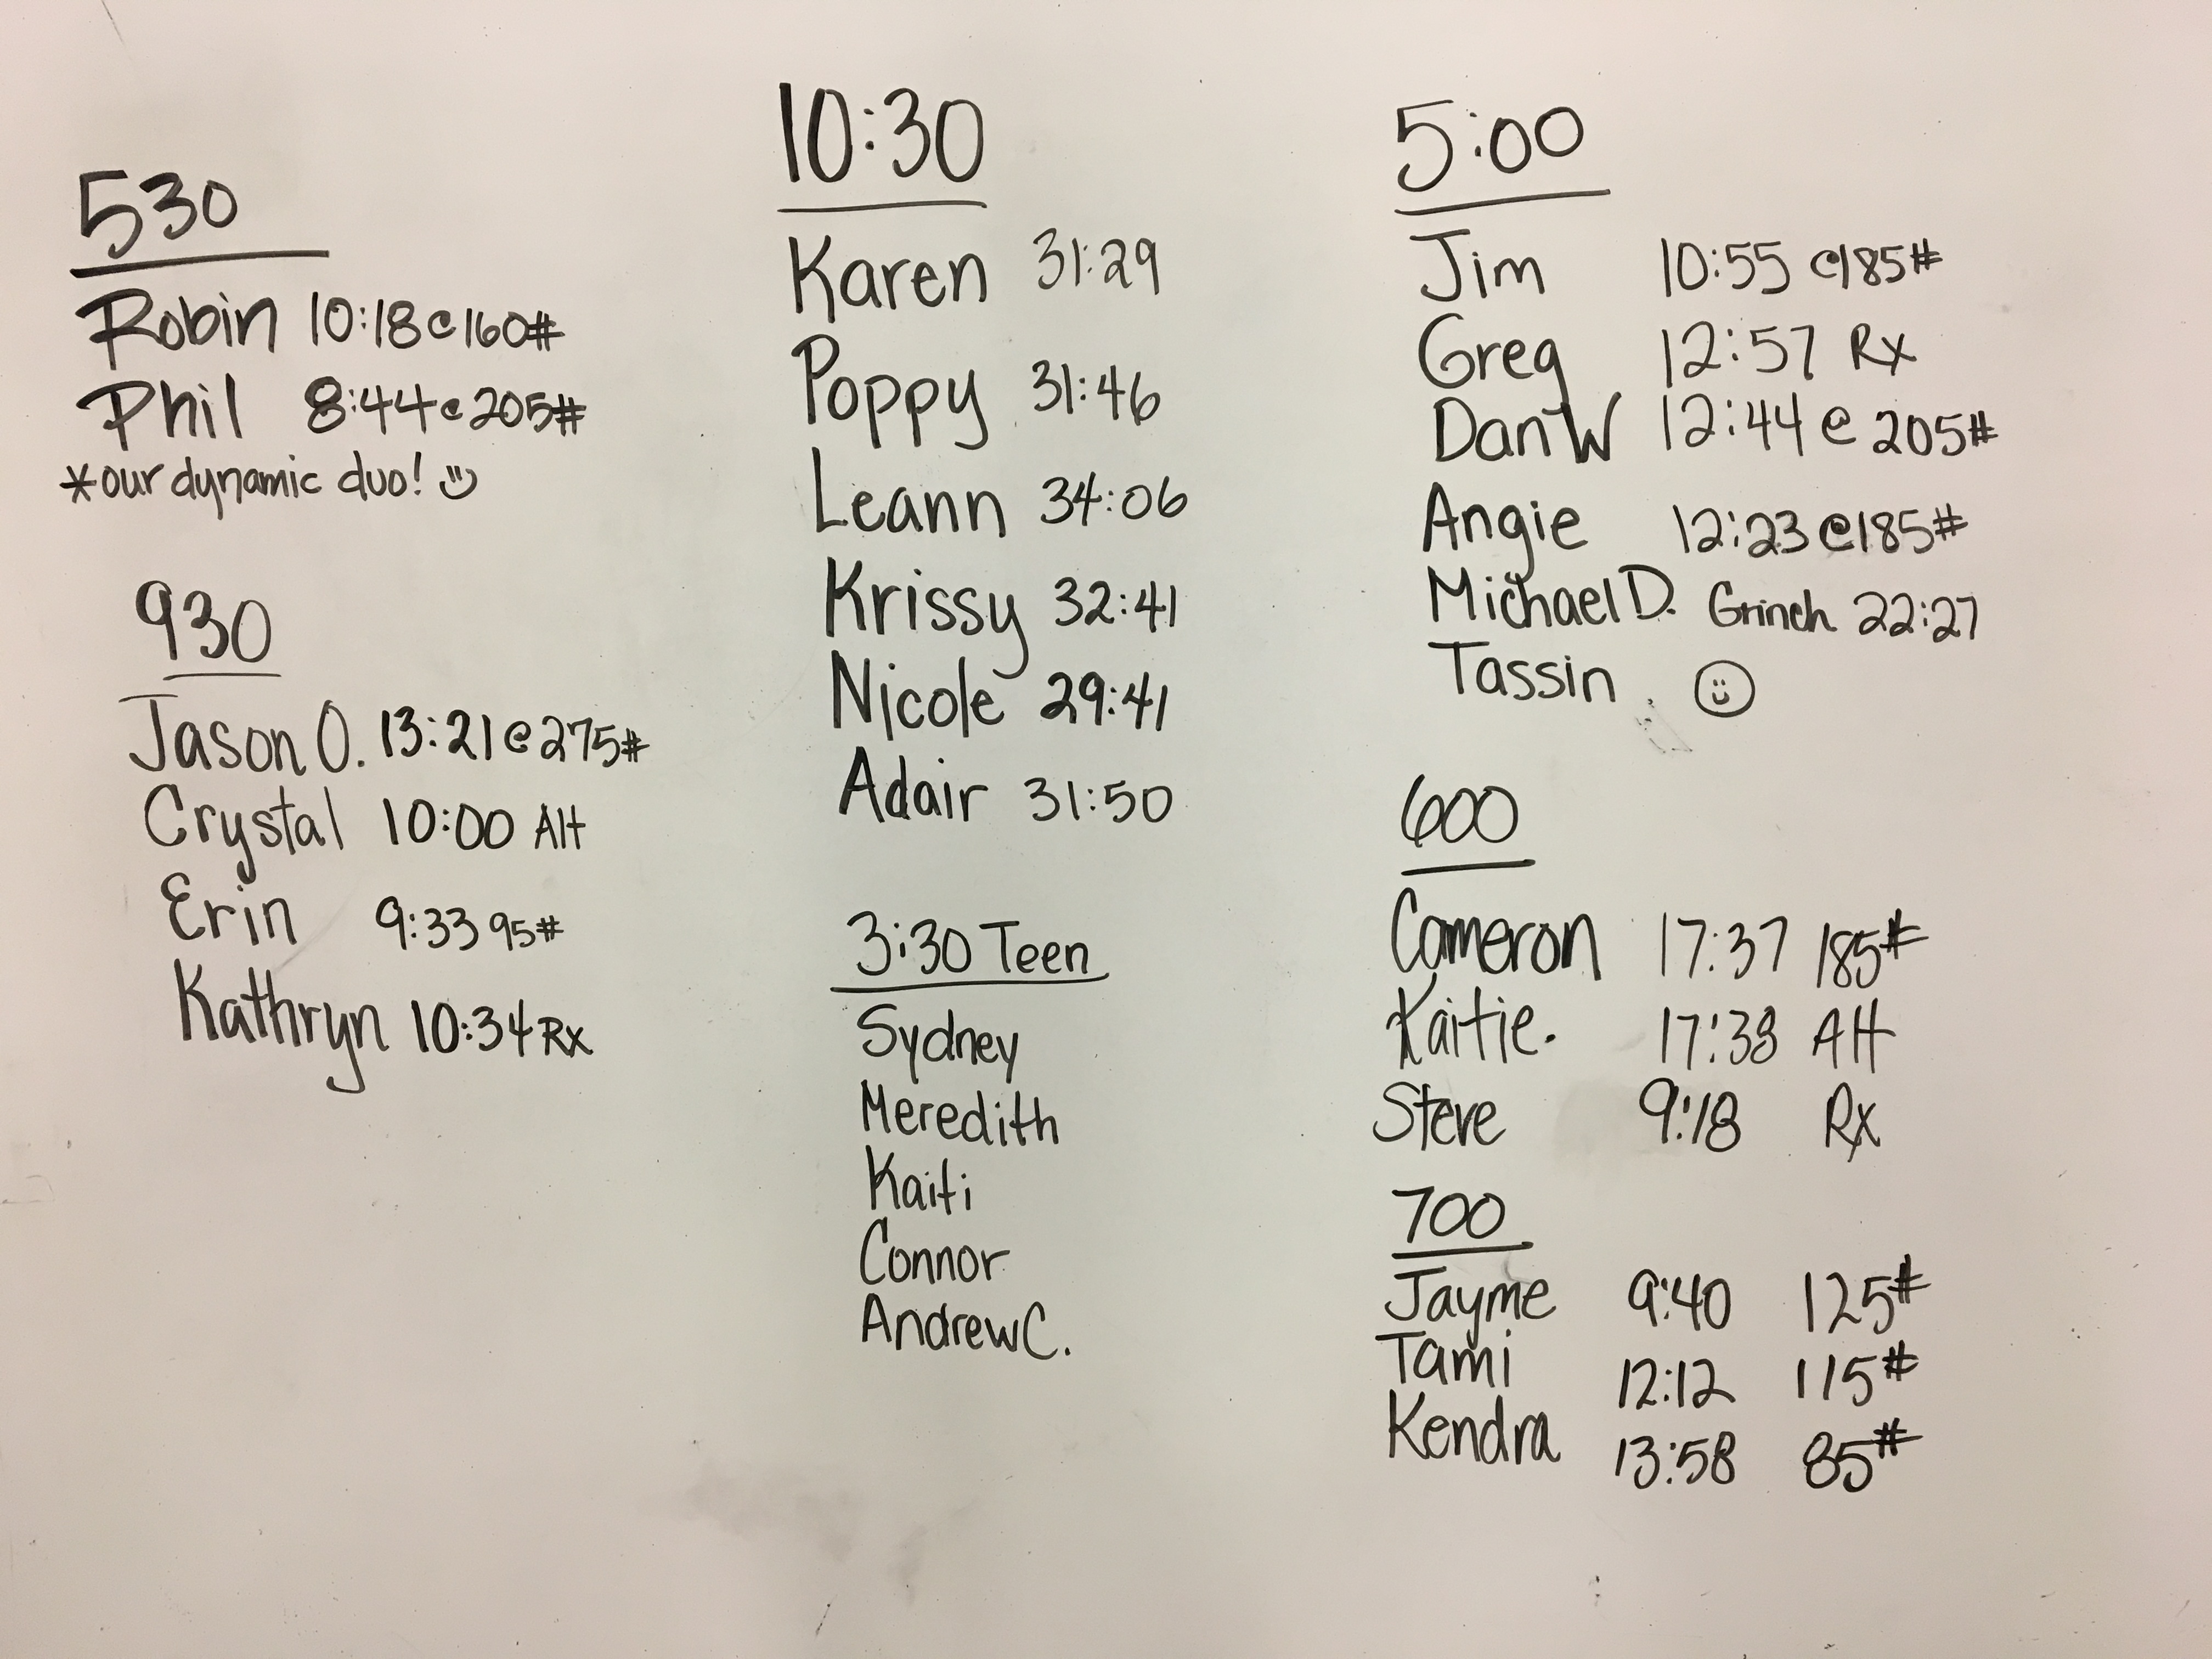 530
Robin 10:18 @ 160#
Phil 8:44 @ 205#
*our dynamic duo!
930
Jason O. 13:21 @ 275#
Crystal 10:00 Alt
Erin 9:33 95#
Kathryn 10:34 Rx
10:30
Karen 31:29
Poppy 31:46
Leann 34:06
Krissy 32:41
Nicole 29:41
Adair 31:50
3:30 Teen
Sydney
Meredith
Kaiti
Connor
Andrew C.
5:00
Jim 10:55 @185#
Greg 12:57 Rx
Dan W 12:44 @ 205#
Angie 12:23 @185#
Michael D. Grinch 22:27
Tassin
600
Cameron 17:37 185#
Kaitie. 17:38 Alt
Steve 9:18 Rx
700
Jayme 9:40 125#
Tami 12:12 115#
Kendra 13:58 85#